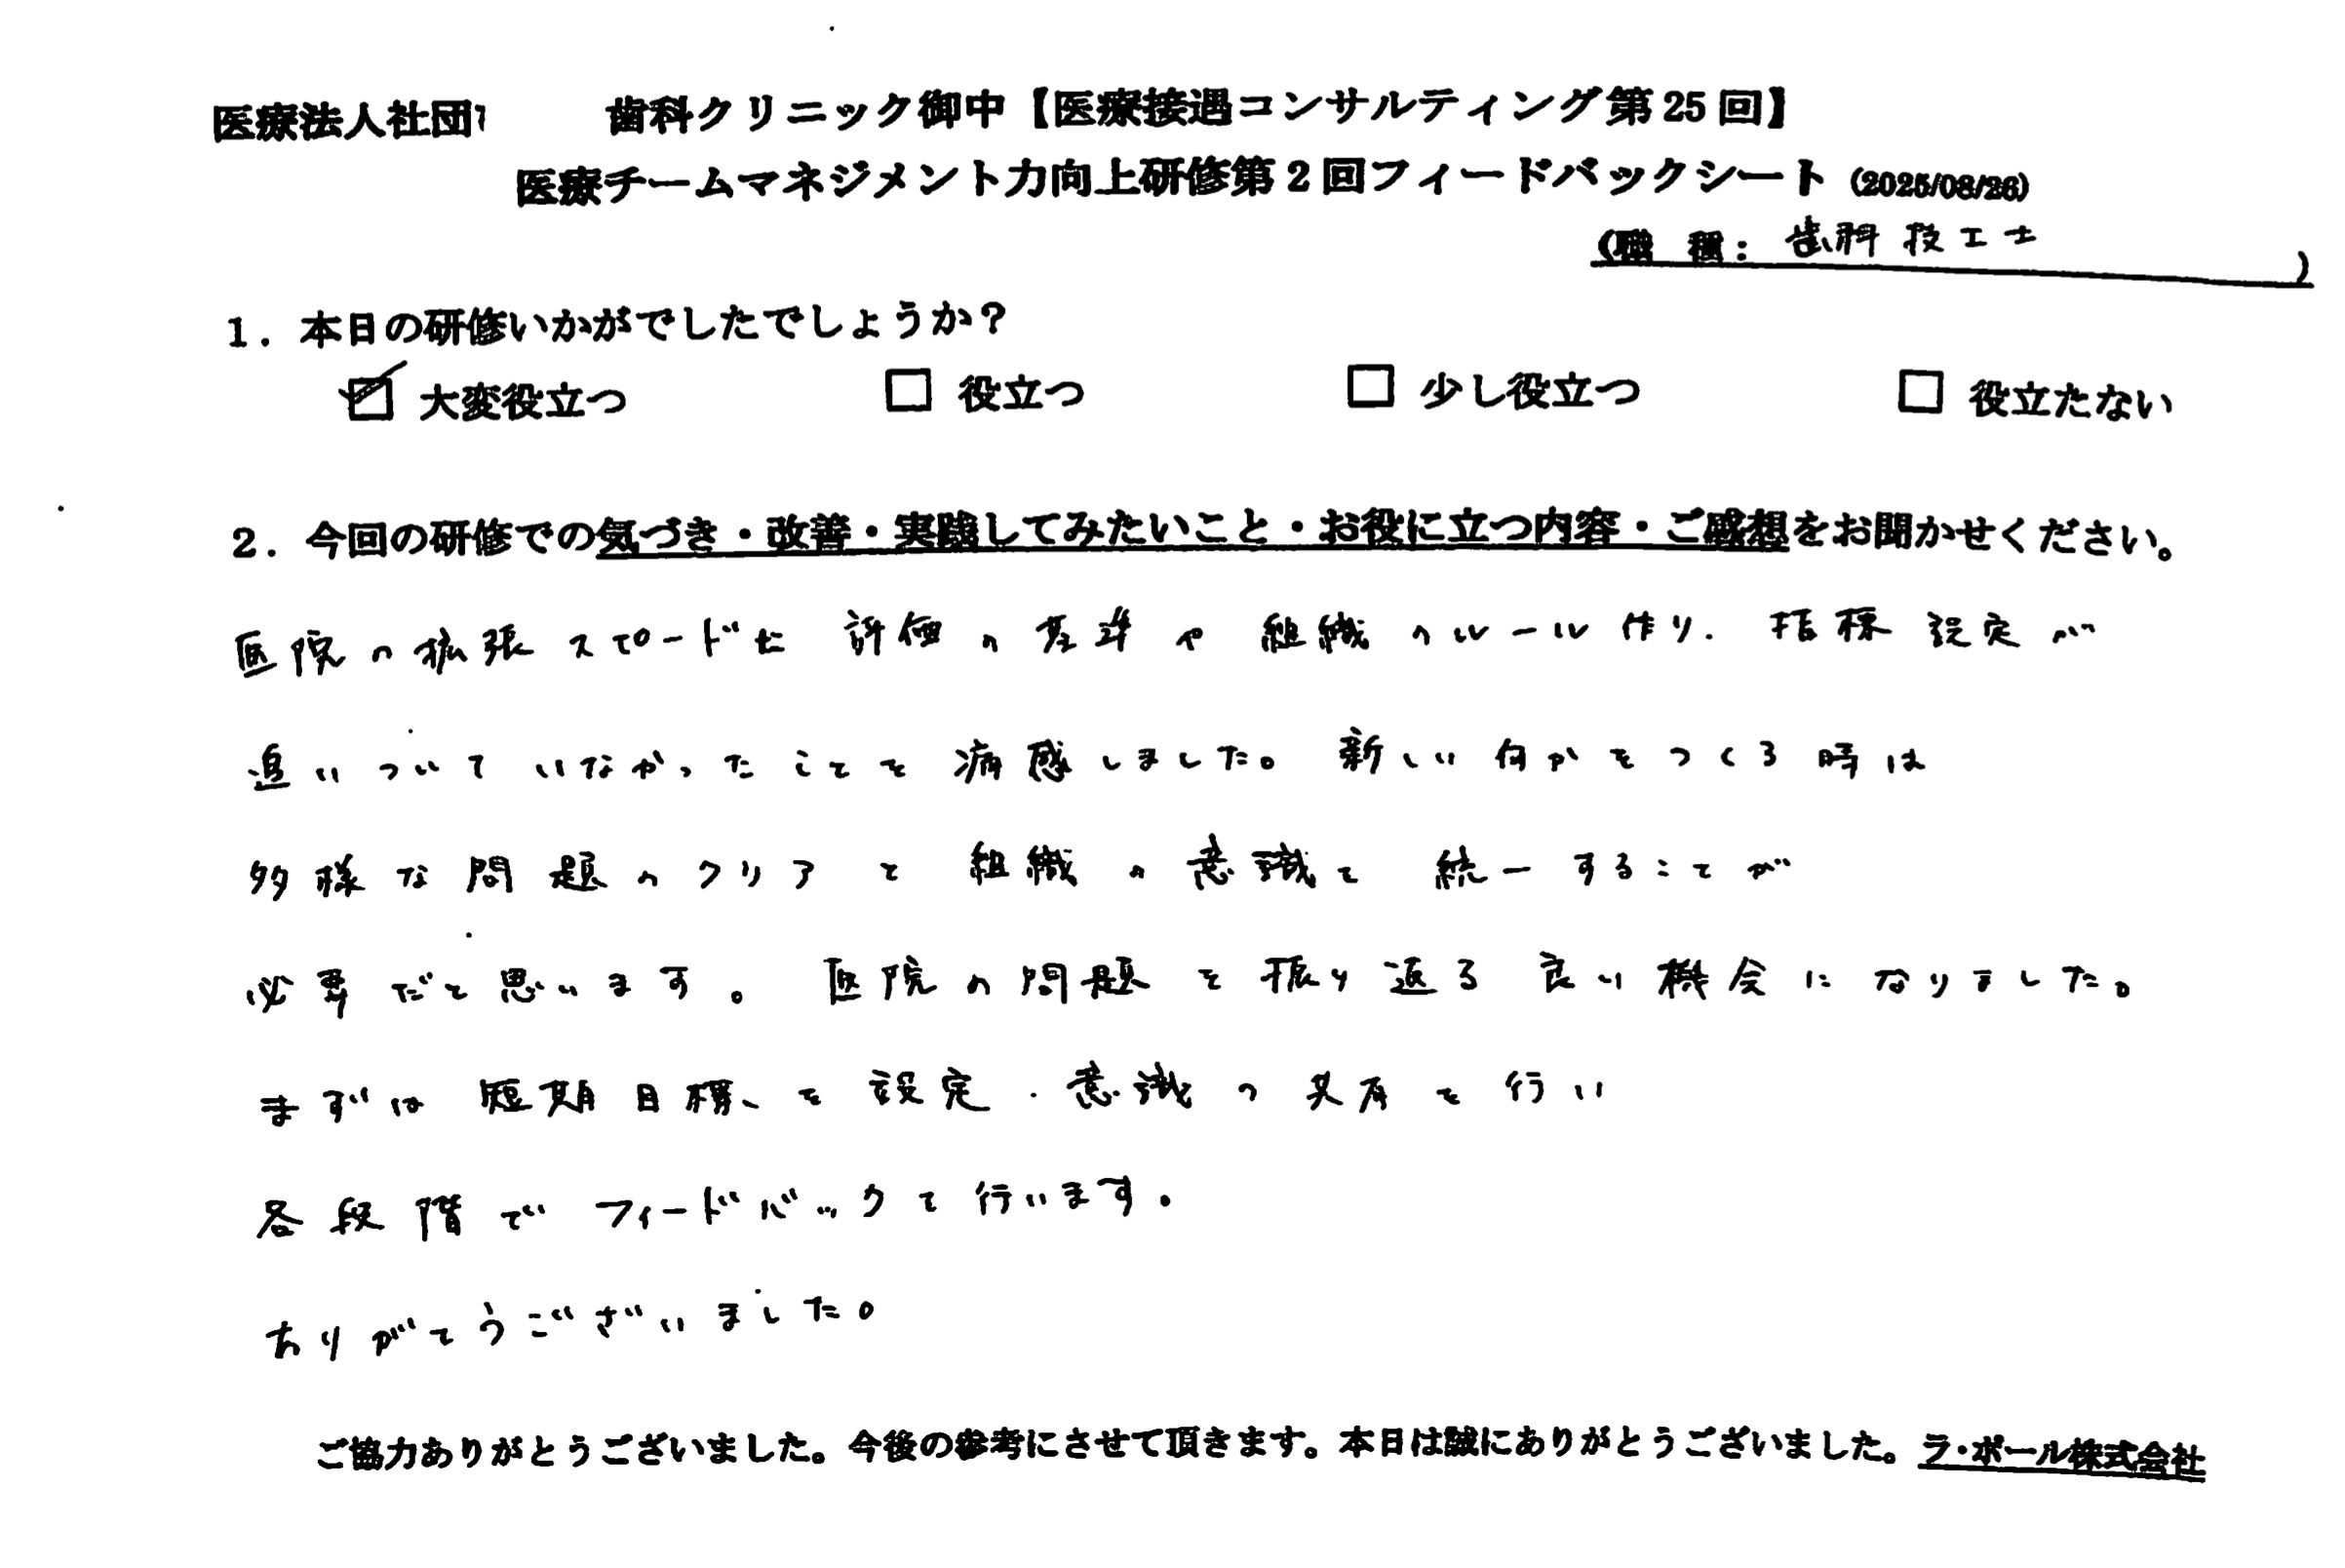 医療法人社団 歯科クリニック御中【医療接遇コンサルティング第25回】
医療チームマネジメント力向上研修第2回フィードバックシート (2025/08/26)
(職 種: 歯科技工士 )
1. 本日の研修いかがでしたでしょうか?
☑ 大変役立つ □ 役立つ □ 少し役立つ □ 役立たない
2. 今回の研修での気づき・改善・実践してみたいこと・お役に立つ内容・ご感想をお聞かせください。
医院の拡張スピードと評価の基準や組織のルール作り. 指標設定が
追いついていなかったことを痛感しました。新しい何かをつくる時は
多様な問題のクリアと組織の意識を統一することが
必要だと思います。医院の問題を振り返る良い機会になりました。
まずは短期目標を設定・意識の共有を行い
各段階でフィードバックを行います。
ありがとうございました。
ご協力ありがとうございました。今後の参考にさせて頂きます。本日は誠にありがとうございました。ラ・ポール株式会社